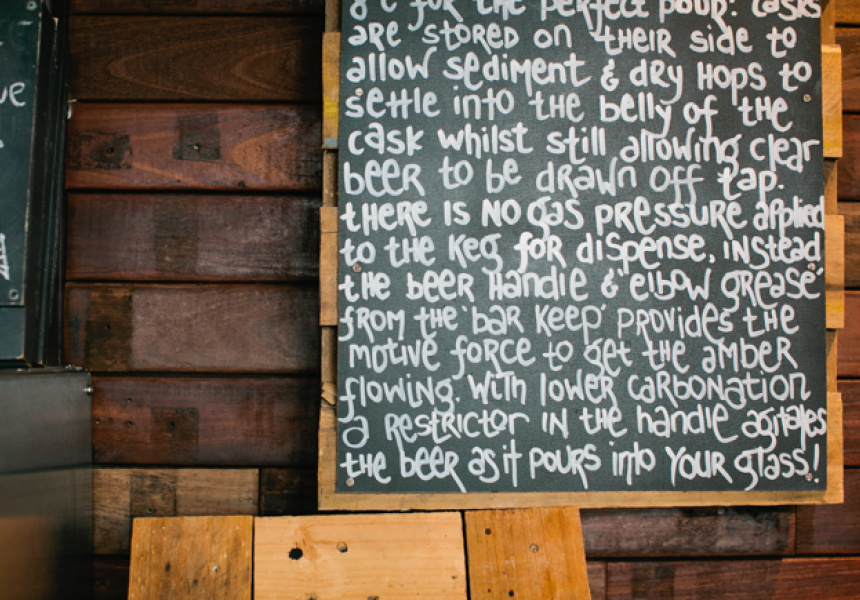 8°C for the perfect pour. Casks
are stored on their side to
allow sediment & dry hops to
settle into the belly of the
cask whilst still allowing clear
beer to be drawn off tap.
there is no gas pressure applied
to the keg for dispense, instead
the beer handle & 'elbow grease'
from the 'bar keep' provides the
motive force to get the amber
flowing. With lower carbonation
a restrictor in the handle agitates
the beer as it pours into your glass!